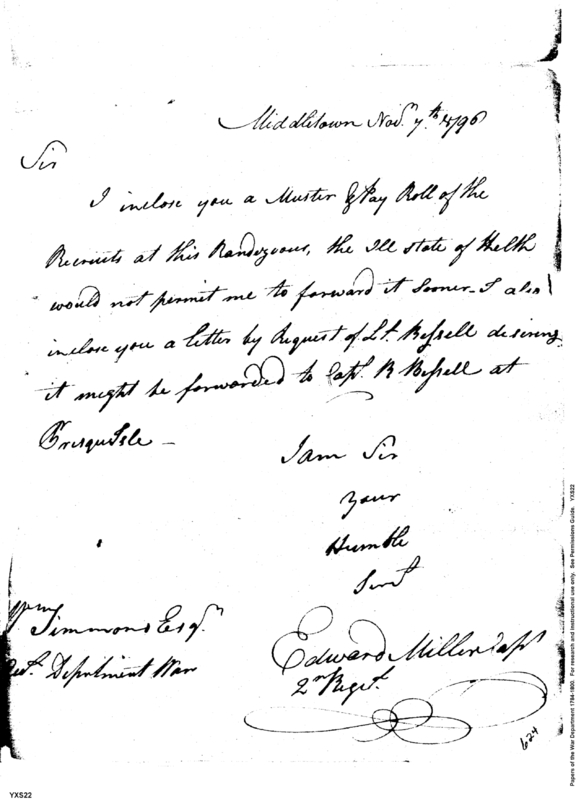 Middletown Novr. 7th. 1796
Sir
I inclose you a Muster & Pay Roll of the
Recruits at this Randezvous, the Ill state of Helth
would not permit me to forward it sooner - I also
inclose you a letter by Request of Lt. Bissell desiring
it might be forwarded to Capt. R Bissell at
Presqu Isle -
I am Sir
your
Humble
Servt
Wm
Simmons Esqr.
Department War
Edward Miller Capt
2nd Regt.
624
YXS22
Papers of the War Department 1784-1800. For research and instructional use only. See Permissions Guide. YXS22